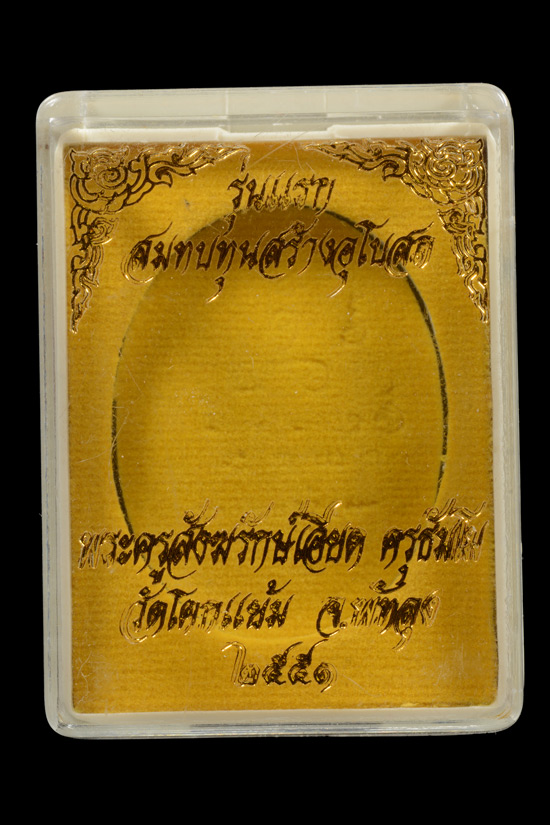 รุ่นแรก
สมทบทุนสร้างอุโบสถ
พระครูสังฆรักษ์เอียด
วัดโคกแย้ม จ.พัทลุง
๒๕๕๑